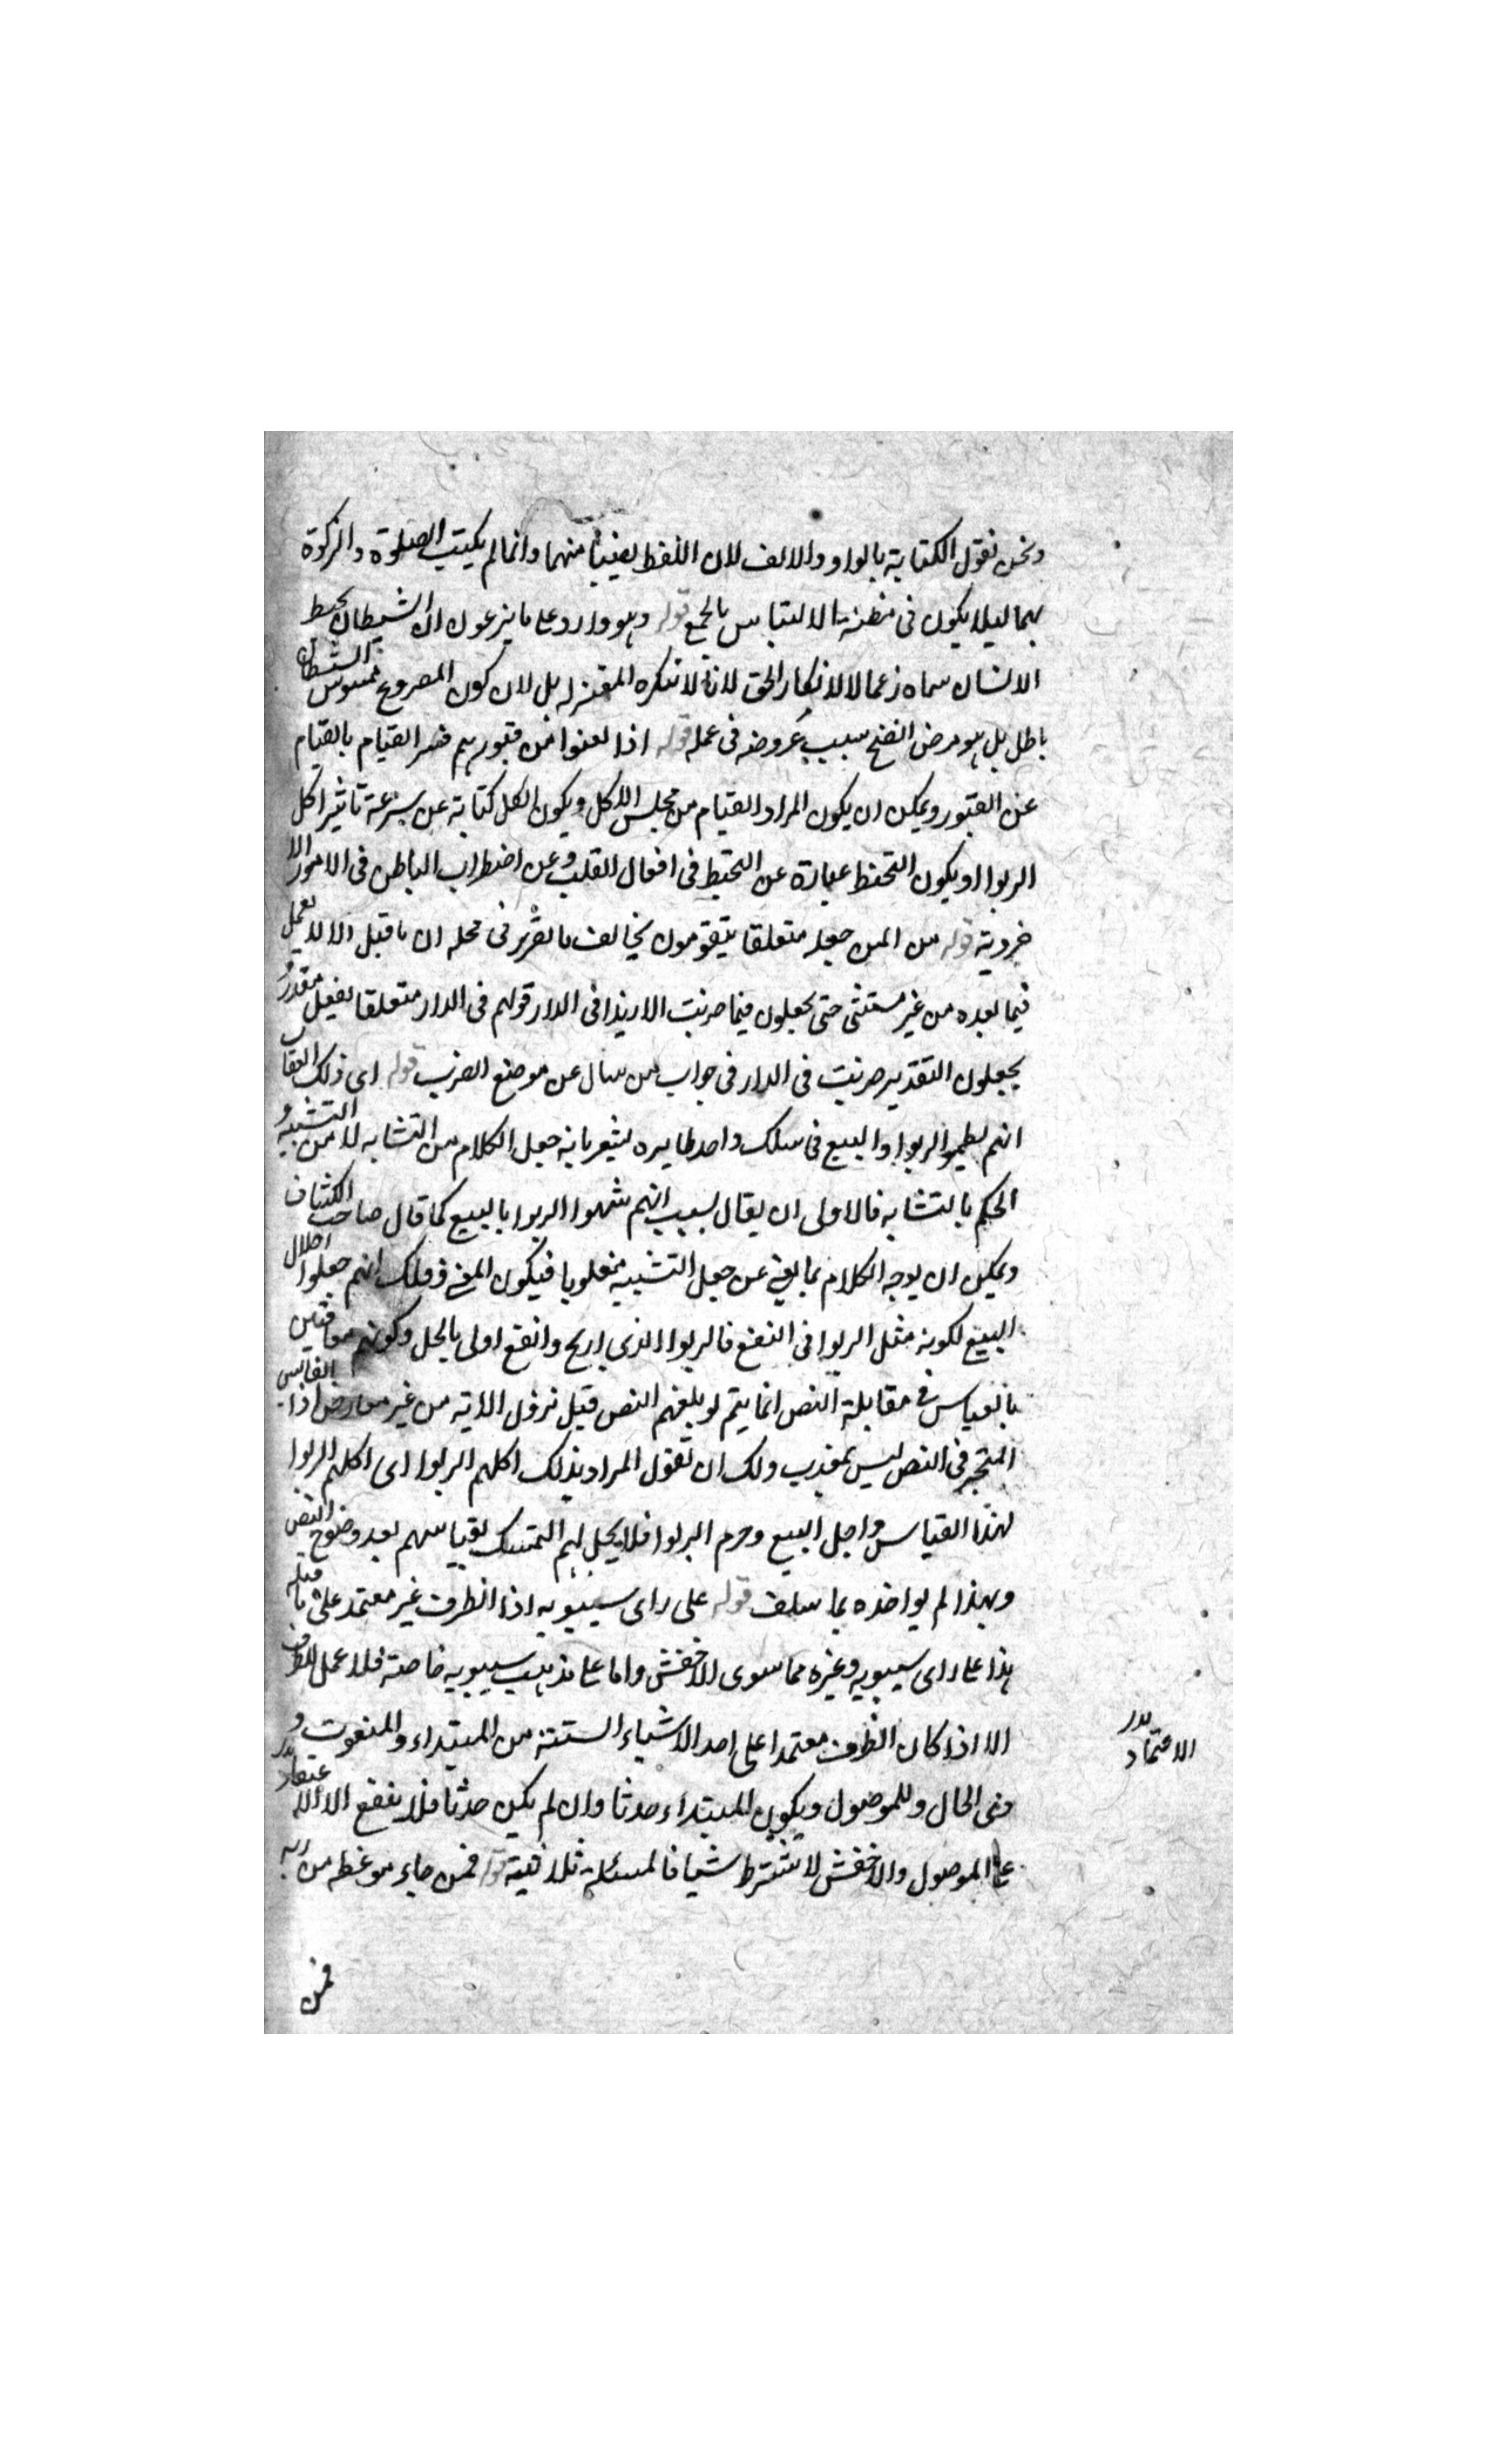 ونحن نقول الكتابة بالواو والالف لان اللفظ نصيبا منهما وانما لم يكتب الصلوة والزكوة
بهما ليلا يكون فى مظنة الالتباس بالجمع قوله وهو وارد على ما يزعمون ان الشيطان يخبط
الانسان سماه زعما لا لانكار الحق لانا لا ننكره المعتزله بل لان كون المصروع ممسوس الشيطان
باطل بل هو مرض سبب عروضه فى عمله قوله اذا بعثوا من قبورهم فسر القيام بالقيام
عن القبور ويمكن ان يكون المراد القيام من مجلس الاكل ويكون الكل كناية عن سرعة تاثير اكل
الربوا او يكون التخبط عبارة عن التخبط فى افعال القلب وعن اضطراب الباطن فى الامور الا
خروية قوله من المس جعله متعلقا بيقومون يخالف ما تقرر فى محله ان ما قبل الا لا يعمل
فيما بعده من غير مستثنى حتى يجعلون فيما ضربت الا زيدا فى الدار قولهم فى الدار متعلقا بفعل مقدر و
يجعلون التقدير ضربت فى الدار فى جواب من سال عن موضع الضرب قوله اى ذلك العقاب
انهم نظموا الربوا والبيع فى سلك واحد ظاهره يشعر بانه جعل الكلام من التشابه لا من التشبيه و
الحكم بالتشابه فالاولى ان يقال بسبب انهم شبهوا الربوا بالبيع كما قال صاحب الكشاف
ويمكن ان يوجه الكلام بما يغنى عن جعل التشبيه مقلوبا فيكون المعنى ذلك انهم جعلوا احلال
البيع لكونه مثل الربوا فى النفع فالربوا الذى اربح وانفع اولى بالحل وكونهم معاقبين
بالقياس فى مقابلة النص انما يتم لو بلغهم النص قبل نزول الاية من غير معارض اذا القايس
المتحير فى النص ليس بمعذب ولك ان تقول المراد بذلك اكلهم الربوا اى اكلهم الربوا
لهذا القياس واحل البيع وحرم الربوا فلا يحل لهم التمسك بقياسهم بعد وضوح النص
وبهذا لم يواخذه بما سلف قوله على راى سيبويه اذا الظرف غير معتمد على ما قبله
هذا على راى سيبويه وغيره مما سوى الاخفش واما على مذهب سيبويه خاصة فلا عمل للظرف
الا اذا كان الظرف معتمدا على احد الاشياء الستة من المبتداء والمنعوت و
ذى الحال وللموصول ويكون المبتداء حدثا وان لم يكن حدثا فلا يقع الا
على الموصول والاخفش لا يشترط شيا فالمسئلة خلافية قوله فمن جاء موعظه من ربه
الاعتماد
فمن